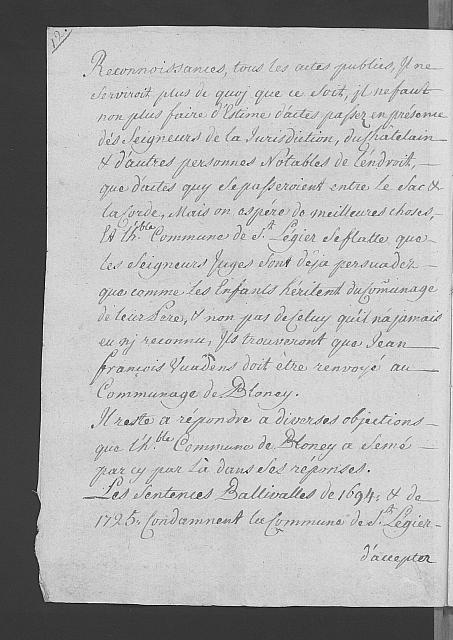 12.
Reconnoissances, tous les actes publics, Il ne
serviroit plus de quoj que ce soit, jl ne faut
non plus faire d'Estime d'actes passez en présence
dés Seigneurs de la Jurisdiction, du Châtelain
& d'autres personnes Notables de l'éndroit,
que d'actes quy se passeroient entre le Sac &
la Corde, Mais on espére de meilleures choses,
Et l'h.ble Commune de S.t Légier se flatte que
les Seigneurs Juges sont déja persuadez
que comme les Enfants héritent du Com̃unage
de leur Pere, & non pas de Celuy qu'il n'a jamais
eu nj reconnu, Ils trouveront que Jean
françois Vuadens doit être renvoyé au
Communage de Bloney.
Il reste a répondre a diverses objections
que l'h.ble Commune de Bloney a Semé
par cy par là dans ses réponses.
Les Sentences Ballivalles de 1694, & de
1725, Condamnent la Commune de S.t Légier
d'accepter